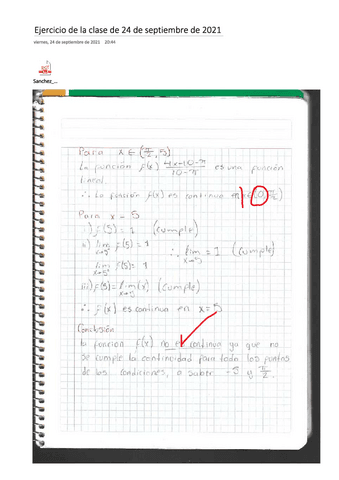 Ejercicio de la clase de 24 de septiembre de 2021
viernes, 24 de septiembre de 2021 20:44
Sanchez_...
Para x ∈ (π/2, 5)
La función f(x) 4x-10-π / 10-π es una función
lineal.
∴ La función f(x) es continua
10
Para x = 5
i) f(5) = 1 (cumple)
ii) lim f(5) = 1
x→5
∴ lim = 1 (cumple)
x→5
lim f(5) = 1
x→5
iii) f(5) = lim(x) (cumple)
x→5
∴ f(x) es continua en x = 5
Conclusión
la función f(x) no es continua ya que no
se cumple la continuidad para todo los puntos
de las condiciones, a saber -5 y π/2.